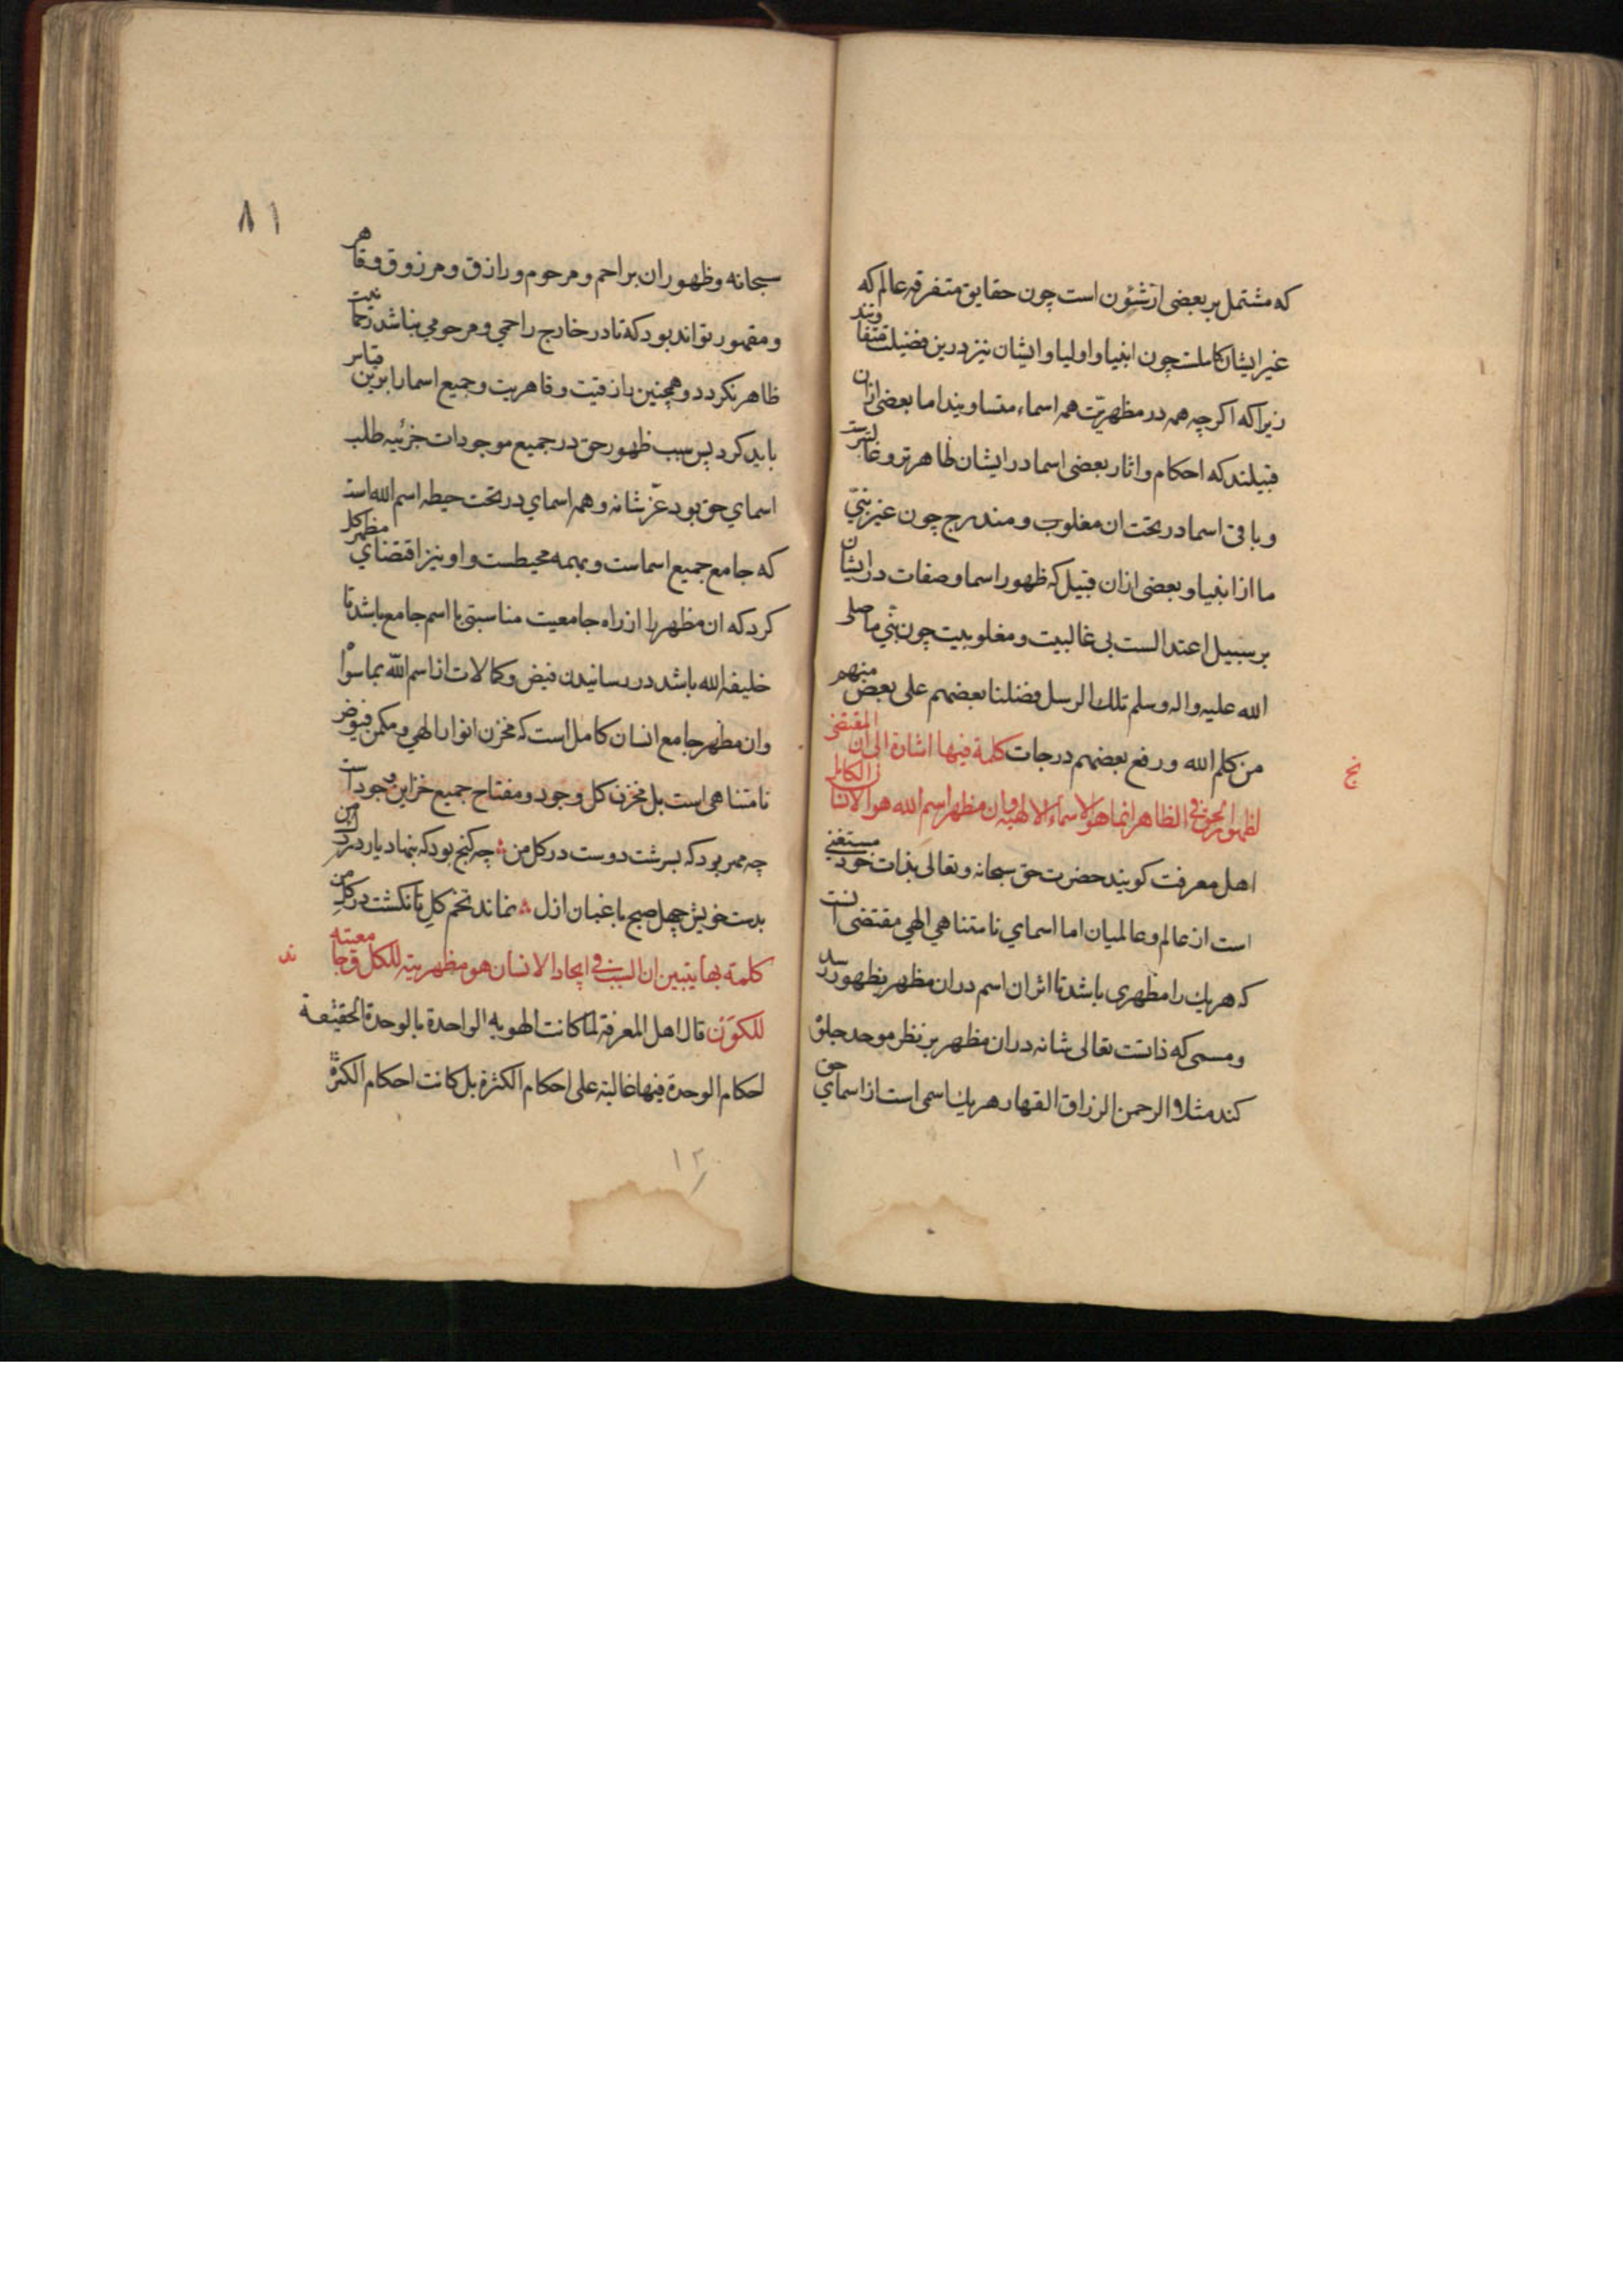 که مشتمل بر بعضی از شؤن است چون حقایق متفرقه عالم که
غیر ایشان کاملست چون انبیا و اولیا و ایشان نیز درین فضیلت متفاوتند
زیرا که اکرچه همه در مظهریّت همه اسماء متساویند اما بعضی ازان
قبیلند که احکام و اثار بعضی اسما در ایشان ظاهرتر و غالبترست
و باقی اسما در تحت ان مغلوب و مندرج چون غیر نبیّ
ما از انبیا و بعضی ازان قبیل که ظهور اسما و صفات در ایشان
بر سبیل اعتدالست بی غالبیت و مغلوبیت چون نبی ما صلی
الله علیه واله وسلم تلك الرسل فضلنا بعضهم علی بعض منهم
من کلم الله ورفع بعضهم درجات کلمة فیها اشارة الی ان المقتضی
لظهور الحق فی الظاهر انما هو الاسماء الالهیة وان مظهر اسم الله هو الانسان الکامل
نج
اهل معرفت کویند حضرت حق سبحانه وتعالی بذات خود مستغنی
است از عالم و عالمیان اما اسمای نامتناهی الهی مقتضی انست
که هریك را مظهری باشد تا اثر ان اسم دران مظهر بظهور رسد
و مسمی که ذاتست تعالی شانه دران مظهر بر نظر موحد جلوه
کند مثلا الرحمن الرزاق القهار هریك اسمی است از اسمای حق
۸۱
سبحانه و ظهور ان براحم و مرحوم و رازق و مرزوق و قاهر
و مقهور تواند بود که تا در خارج راحمی و مرحومی نباشد رحمانیت
ظاهر نکردد و همچنین رازقیت و قاهریت و جمیع اسما را برین قیاس
باید کرد پس سبب ظهور حق در جمیع موجودات جزئیه طلب
اسمای حق بود عزّ شانه و همه اسمای در تحت حیطه اسم الله است
که جامع جمیع اسماست و بهمه محیطست و او نیز اقتضای مظهر کل
کرد که ان مظهر را از راه جامعیت مناسبتی با اسم جامع باشد تا
خلیفه الله باشد در رسانیدن فیض و کمالات از اسم الله بماسواه
وان مظهر جامع انسان کامل است که مخزن انوار الهی و مکمن فیوض
نامتناهی است بل مخزن کل وجود و مفتاح جمیع خزاین جود است
چه مهر بود که بسرشت دوست در کل من چه کنج بود که بنهاد یار در دل من
بدست خویش چهل صبح باغبان ازل نماند تخم کل تا نکشت در کل من
کلمة بها یتبین ان السبب فی ایجاد الانسان هو مظهریته للکل وجامعیته
ند
للکون قال اهل المعرفة لما کانت الهویه الواحدة بالوحدة الحقیقة
احکام الوحدة فیها غالبة علی احکام الکثرة بل کانت احکام الکثرة
۱۲